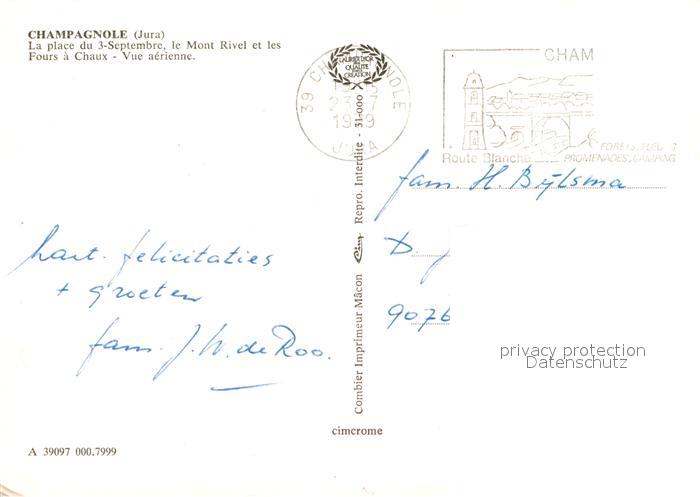 CHAMPAGNOLE (Jura)
La place du 3-Septembre, le Mont Rivel et les
Fours à Chaux - Vue aérienne.
LAURIER D'OR
QUALITE
CREATION
39 CHAMPAGNOLE
23-7
JURA
CHAM
Route Blanche
PROMENADES, CAMPING
fam. H. Bijlsma
D
9076
hart. felicitaties
+ groeten
fam. J. W. de Roo.
Combier Imprimeur Mâcon Cim Repro. Interdite - 31-000
privacy protection
Datenschutz
cimcrome
A 39097 000.7999